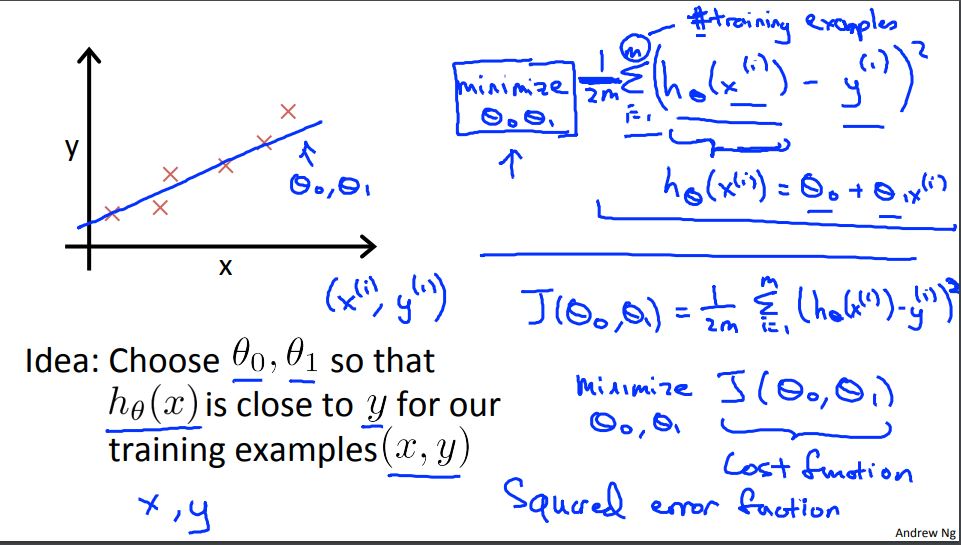 y
x
θ₀, θ₁
(x⁽ⁱ⁾, y⁽ⁱ⁾)
Idea: Choose θ₀, θ₁ so that
hθ(x) is close to y for our
training examples (x, y)
x, y
#training examples
minimize
θ₀ θ₁
1/2m Σᵢ₌₁ᵐ (hθ(x⁽ⁱ⁾) - y⁽ⁱ⁾)²
hθ(x⁽ⁱ⁾) = θ₀ + θ₁x⁽ⁱ⁾
J(θ₀, θ₁) = 1/2m Σᵢ₌₁ᵐ (hθ(x⁽ⁱ⁾) - y⁽ⁱ⁾)²
minimize J(θ₀, θ₁)
θ₀, θ₁
Cost function
Squared error faction
Andrew Ng